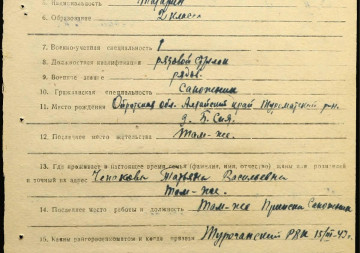 5. Национальность Татарин
6. Образование 2 класса
7. Военно-учетная специальность 1
8. Должностная квалификация рядовой стрелок
9. Воинское звание рядов.
10. Гражданская специальность Сапожник
11. Место рождения Ойротская обл. Алтайский край р-н.
д. Б.
12. Последнее место жительства Там-же.
13. Где проживает в настоящее время семья (фамилия, имя, отчество) жены или родителей
и точный их адрес Татьяна Васильевна
Там-же.
14. Последнее место работы и должность Там-же Сапожник
15. Каким райгорвоенкоматом и когда призван Турочакский РВК 15/III-43 г.